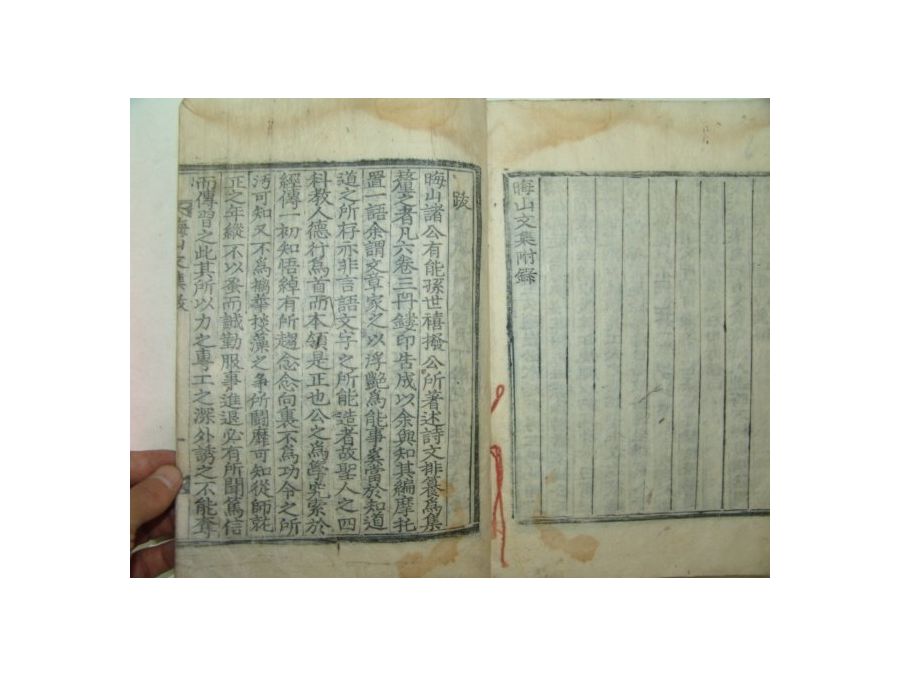 晦山文集附錄
跋
晦山諸公有能孫世禧撥公所著述詩文排纂爲集
釐之者凡六卷三冊鏤印告成以余與知其編摩托
置一語余謂文章家之以浮艶爲能事奚當於知道
道之所存亦非言語文字之所能造者故聖人之四
科教人德行爲首而本領是正也公之爲學究索於
經傳一初知悟綽有所趨念念向裏不爲功令之所
汚可知又不爲摛華掞藻之爭所鬪靡可知從師就
正之年縱不以蚤而誠勤服事進退必有所聞篤信
而傳習之此其所以力之專工之深外誘之不能奪
晦山文集跋